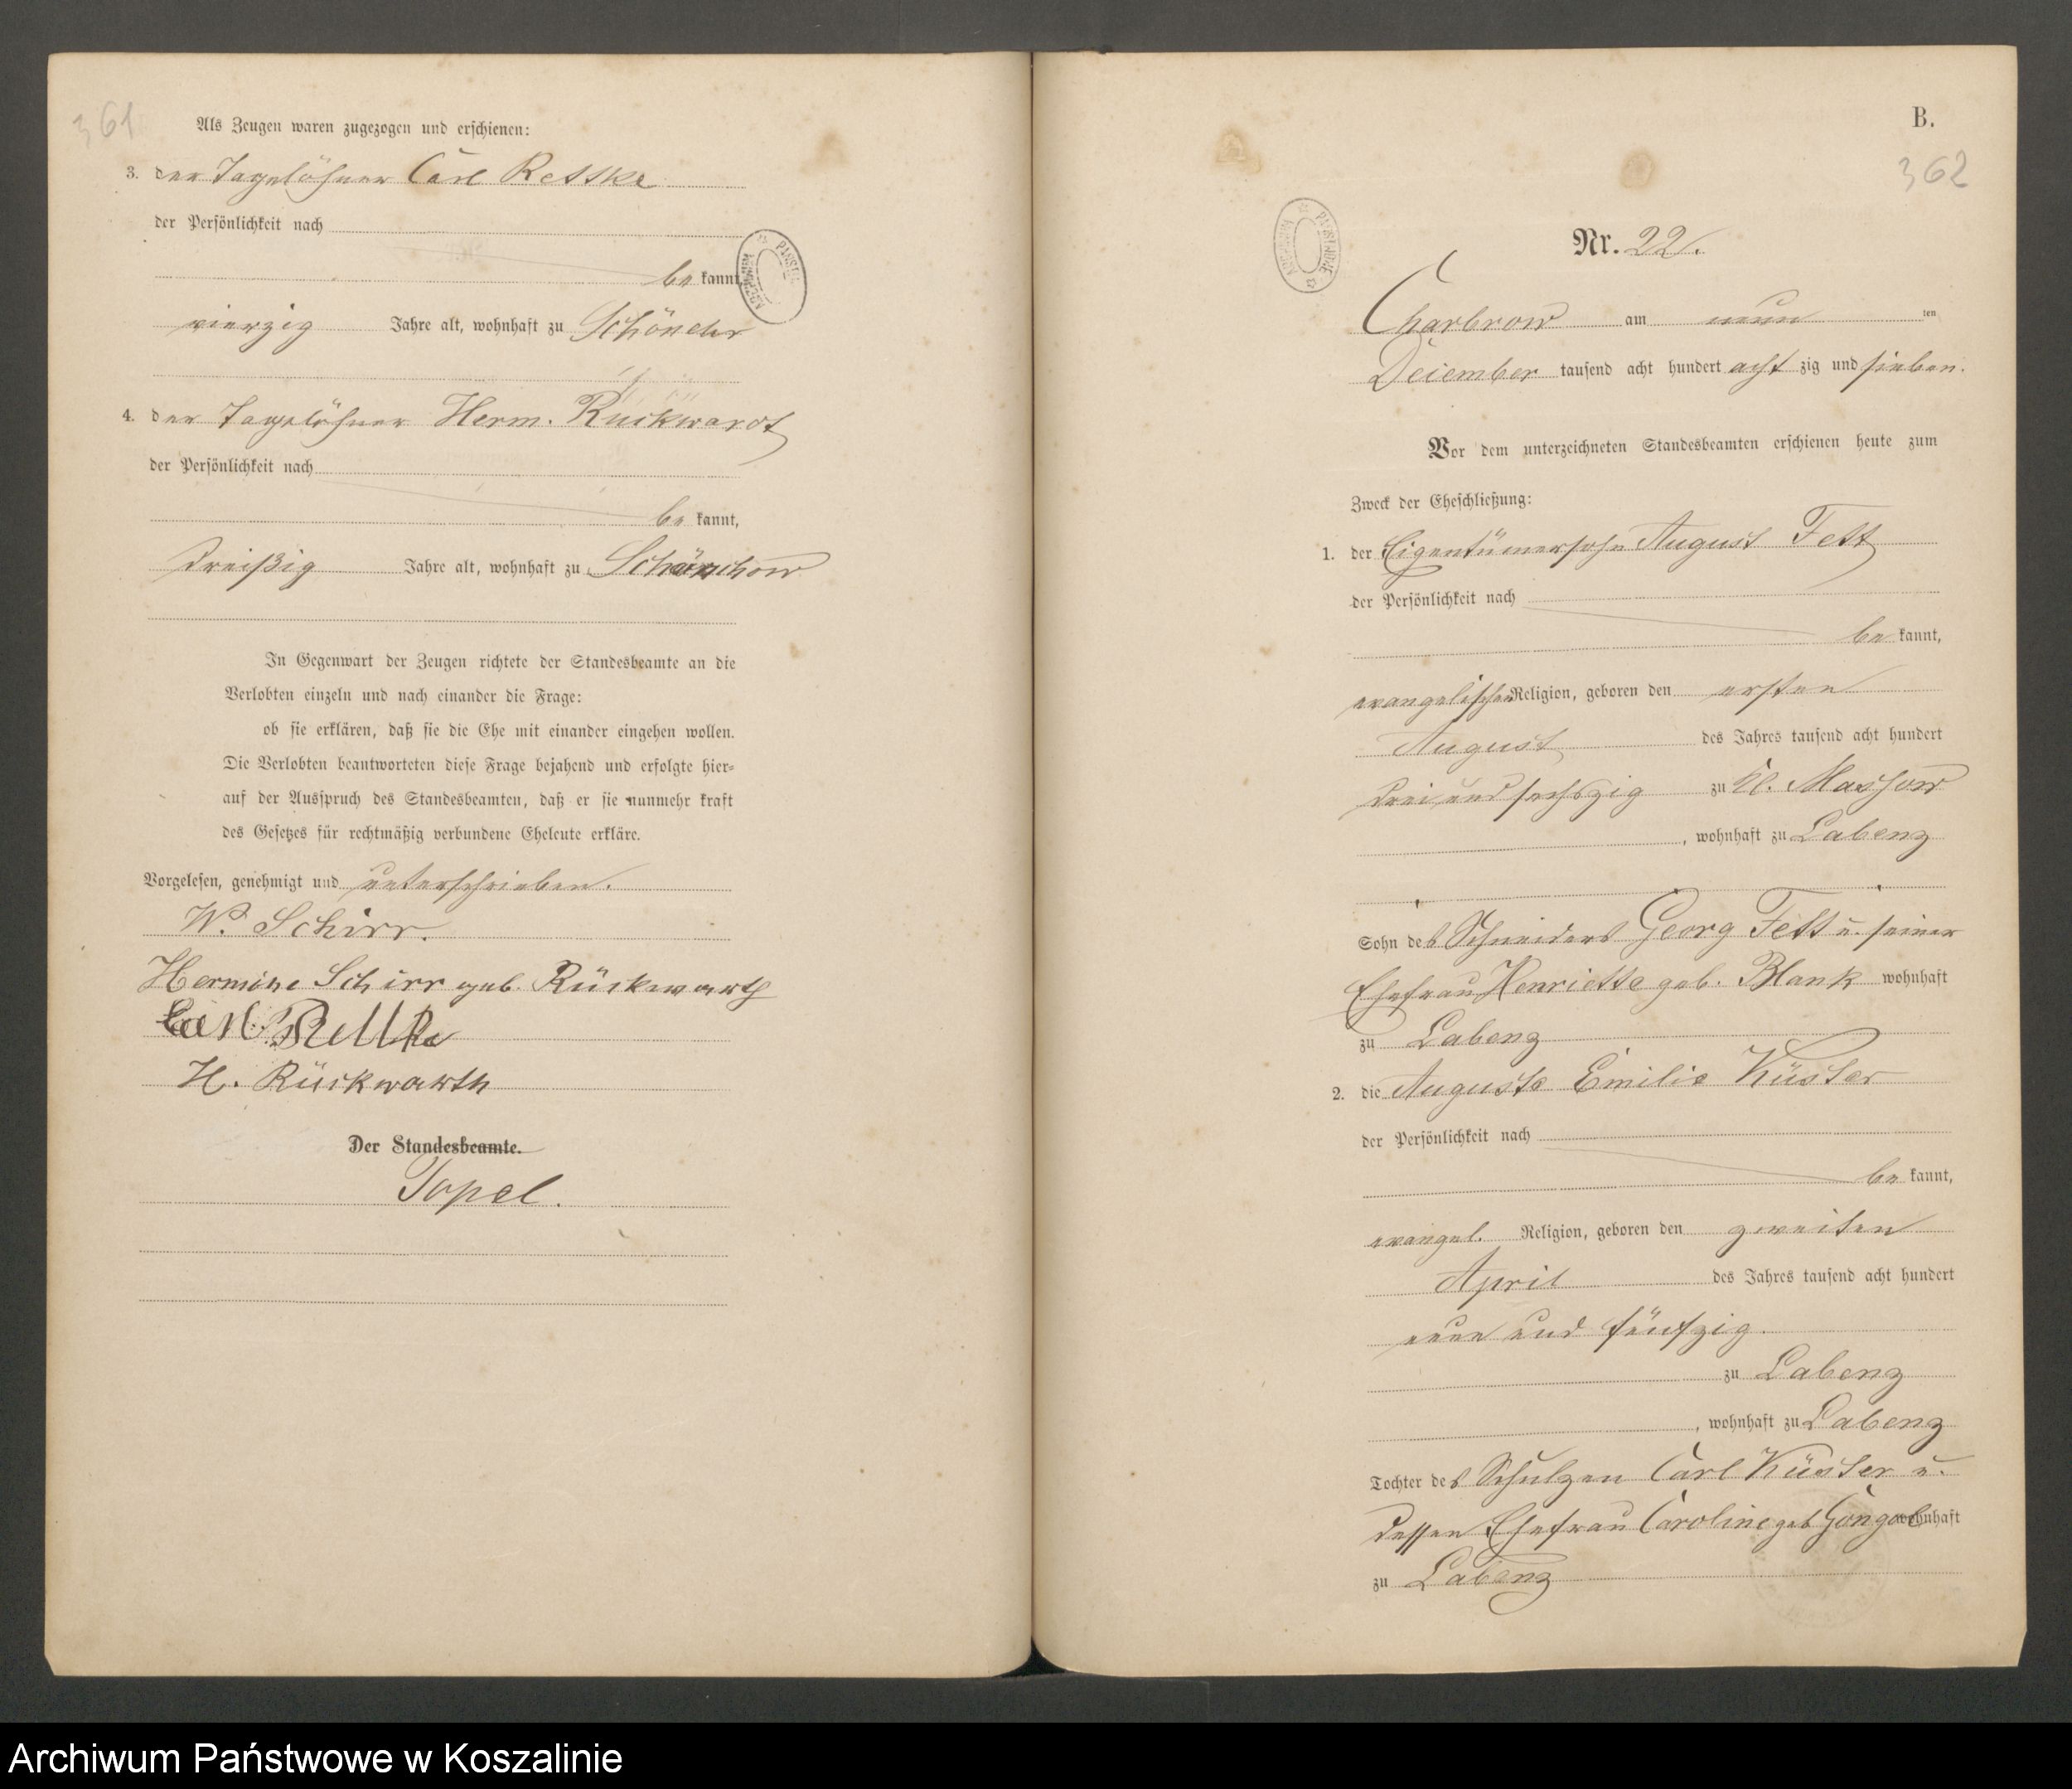 361
Als Zeugen waren zugezogen und erschienen:
3. der Tagelöhner Carl Rettke
der Persönlichkeit nach
be kannt,
vierzig Jahre alt, wohnhaft zu Schönehr
4. der Tagelöhner Herm. Rückwardt
der Persönlichkeit nach
be kannt,
dreißig Jahre alt, wohnhaft zu
In Gegenwart der Zeugen richtete der Standesbeamte an die
Verlobten einzeln und nach einander die Frage:
ob sie erklären, daß sie die Ehe mit einander eingehen wollen.
Die Verlobten beantworteten diese Frage bejahend und erfolgte hier-
auf der Ausspruch des Standesbeamten, daß er sie nunmehr kraft
des Gesetzes für rechtmäßig verbundene Eheleute erkläre.
Vorgelesen, genehmigt und unterschrieben.
W. Schirr.
Hermine Schirr geb. Rückwarth
Carl Rettke
H. Rückwarth
Der Standesbeamte.
Topel.
B.
362
Nr. 22.
Charbrow am neun ten
Dezember tausend acht hundert acht zig und sieben.
Vor dem unterzeichneten Standesbeamten erschienen heute zum
Zweck der Eheschließung:
1. der Eigentümersohn August Fett
der Persönlichkeit nach
be kannt,
evangelischer Religion, geboren den ersten
August des Jahres tausend acht hundert
drei und sechszig zu Kl. Massow
, wohnhaft zu Labenz
Sohn des Schneiders Georg Fett u. seiner
Ehefrau Henriette geb. Blank wohnhaft
zu Labenz
2. die Auguste Emilie Küster
der Persönlichkeit nach
be kannt,
evangel. Religion, geboren den zweiten
April des Jahres tausend acht hundert
neun und fünfzig.
zu Labenz
, wohnhaft zu Labenz
Tochter des Schulzen Carl Küster u.
dessen Ehefrau Caroline geb Göngel wohnhaft
zu Labenz
Archiwum Państwowe w Koszalinie